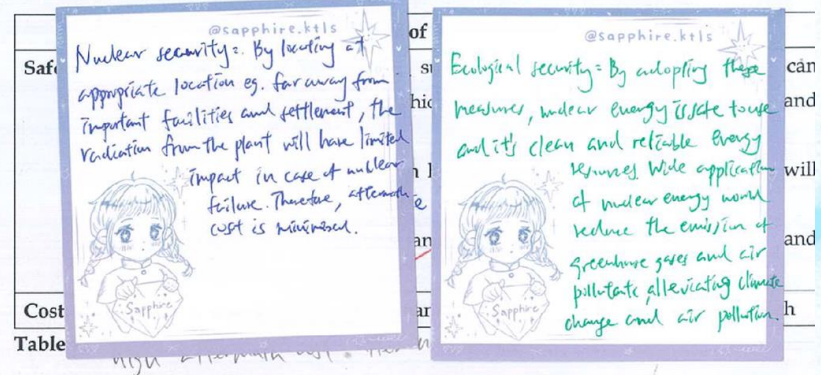 @sapphire.ktls
Nuclear security: By locating at
appropriate location eg. far away from
important facilities and settlement, the
radiation from the plant will have limited
impact in case of nuclear
failure. Therefore, aftermath
cost is minimized.
Sapphire
@sapphire.ktls
Ecological security: By adopting these
measures, nuclear energy is safe to use
and it's clean and reliable energy
resources. Wide application
of nuclear energy would
reduce the emission of
greenhouse gases and air
pollutants, alleviating climate
change and air pollution.
Sapphire
of
Safe
can
and
will
and
Cost
Table
high aftermath cost